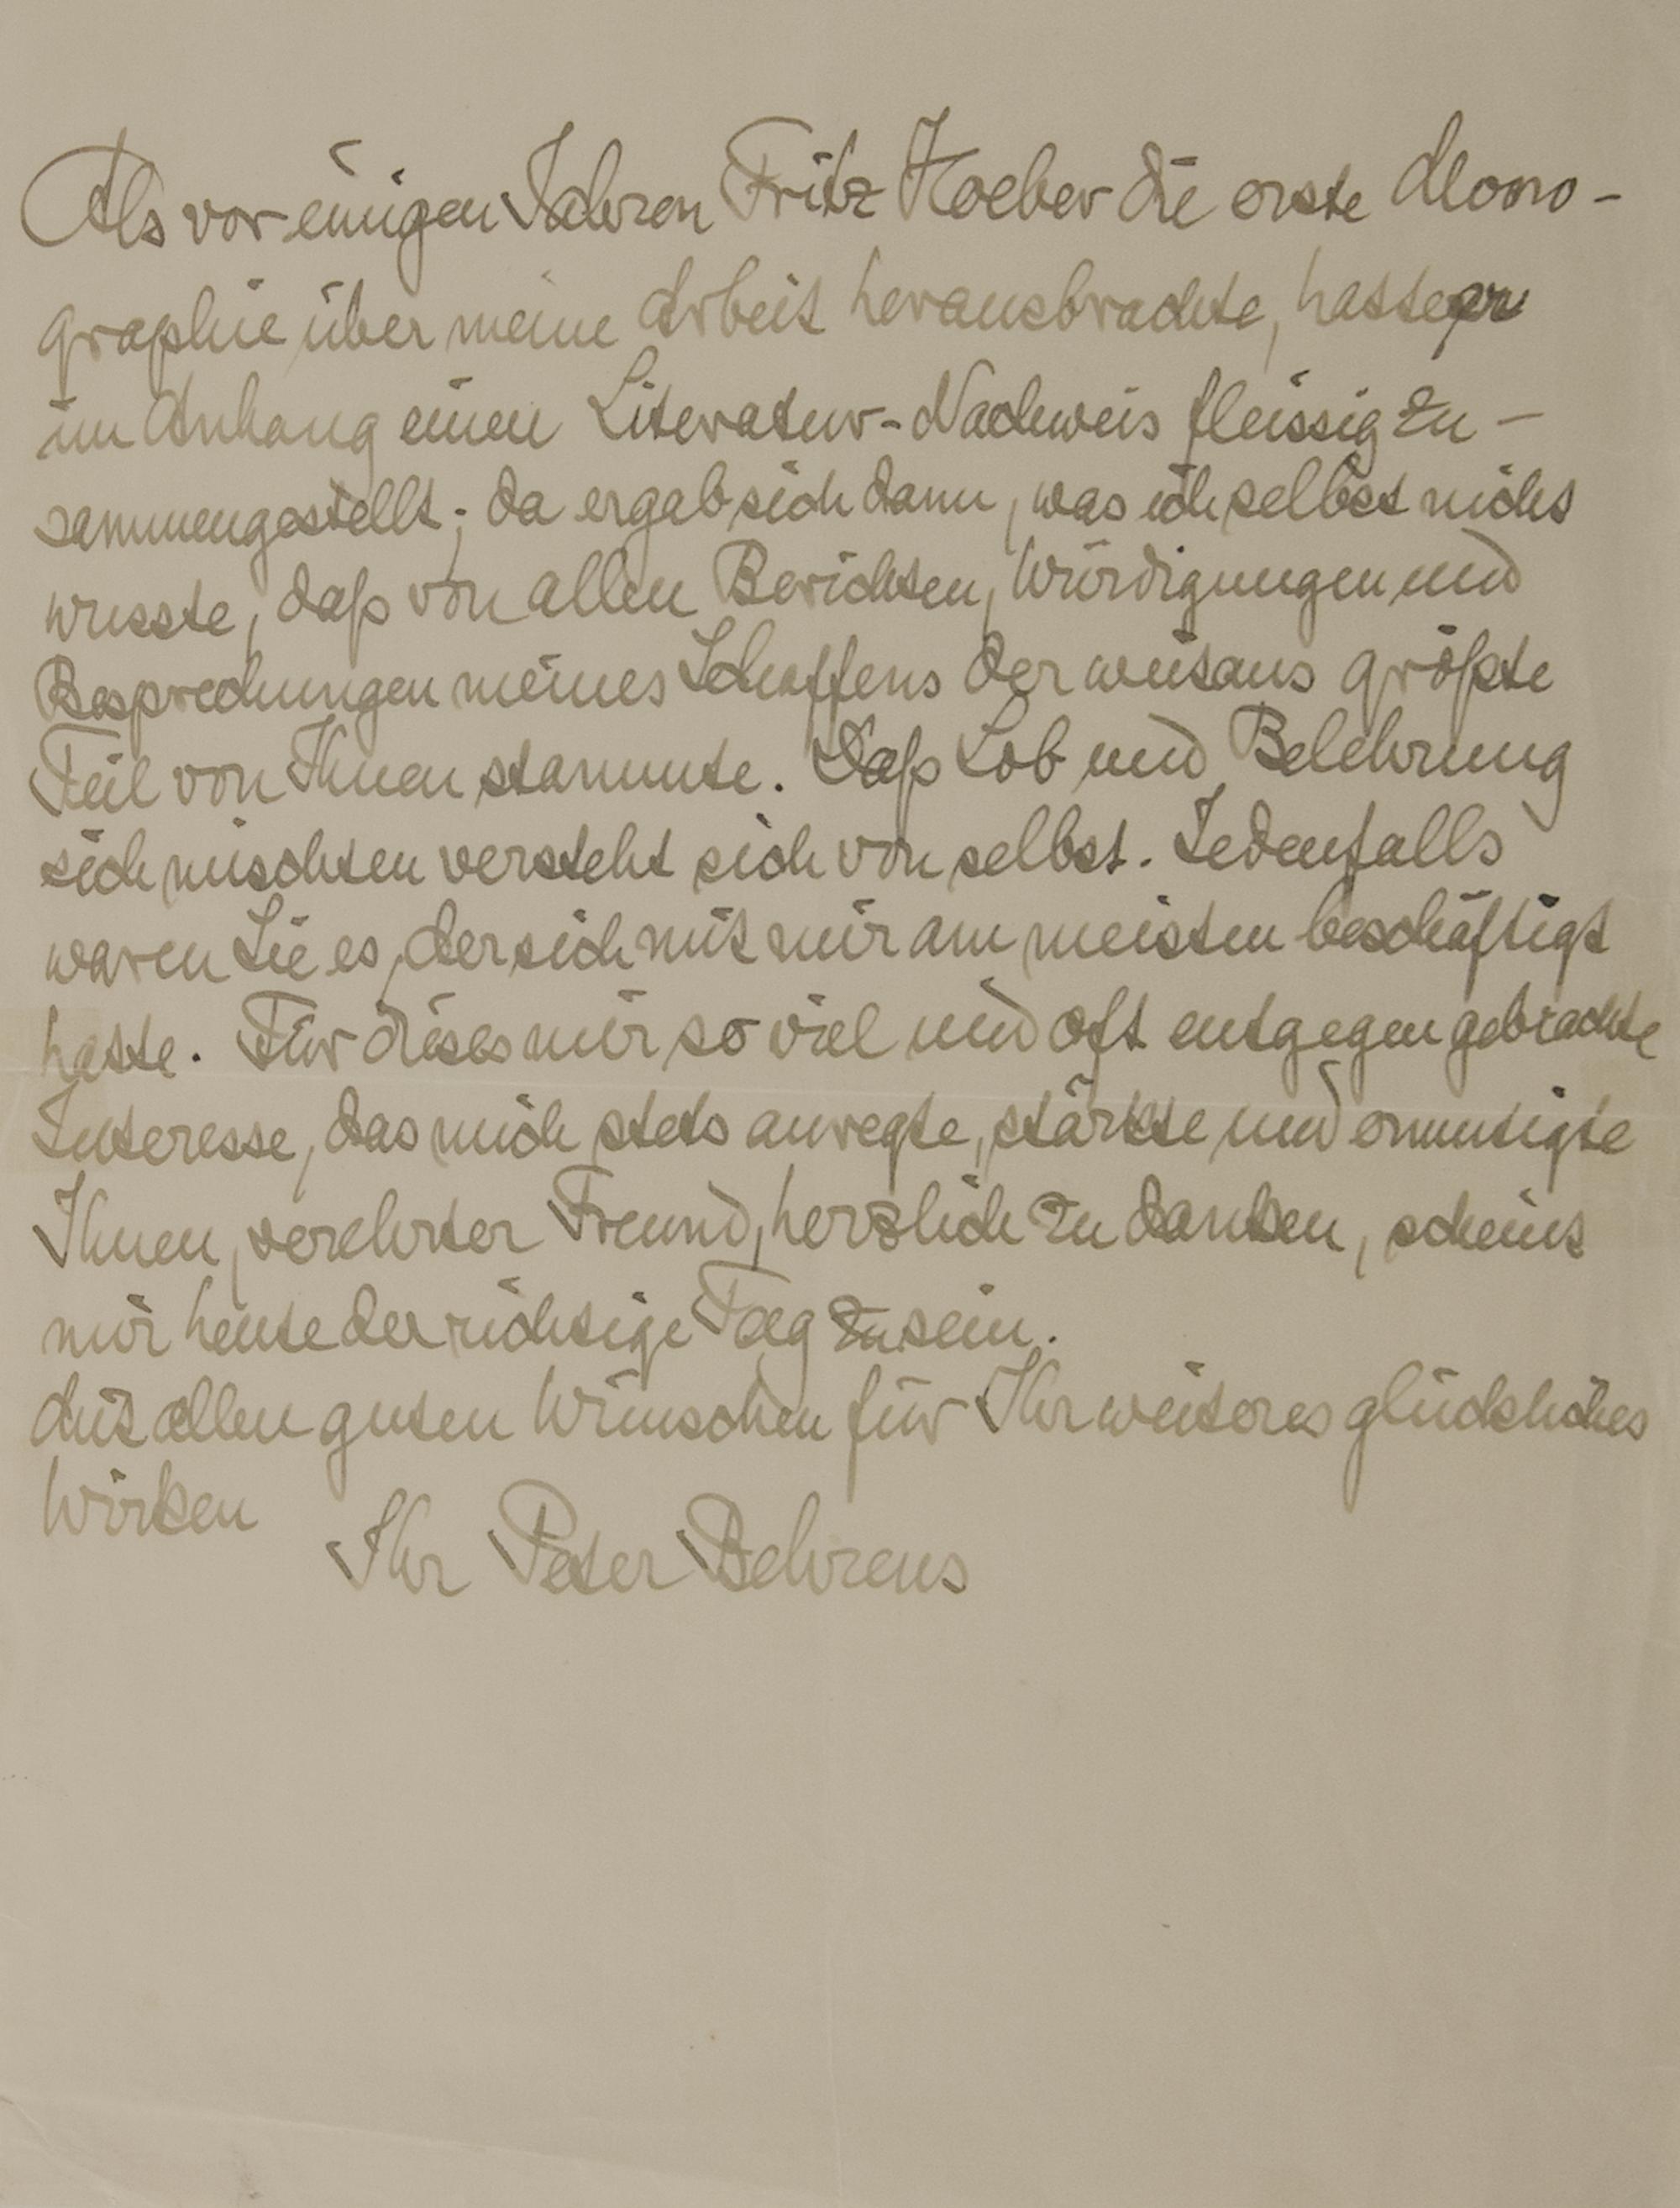 Als vor einigen Jahren Fritz Hoeber die erste Mono-
graphie über meine Arbeit herausbrachte, hatte er
im Anhang einen Literatur-Nachweis fleissig zu-
sammengestellt; da ergab sich dann, was ich selbst nicht
wusste, daß von allen Berichten, Würdigungen und
Besprechungen meines Schaffens der weitaus größte
Teil von Ihnen stammte. Daß Lob und Belehrung
sich mischten versteht sich von selbst. Jedenfalls
waren Sie es, der sich mit mir am meisten beschäftigt
hatte. Für dieses mir so viel und oft entgegen gebrachte
Interesse, das mich stets anregte, stärkte und ermutigte
Ihnen, verehrter Freund, herzlich zu danken, scheint
mir heute der richtige Tag zu sein.
Mit allen guten Wünschen für Ihr weiteres glückliches
Wirken
Ihr Peter Behrens